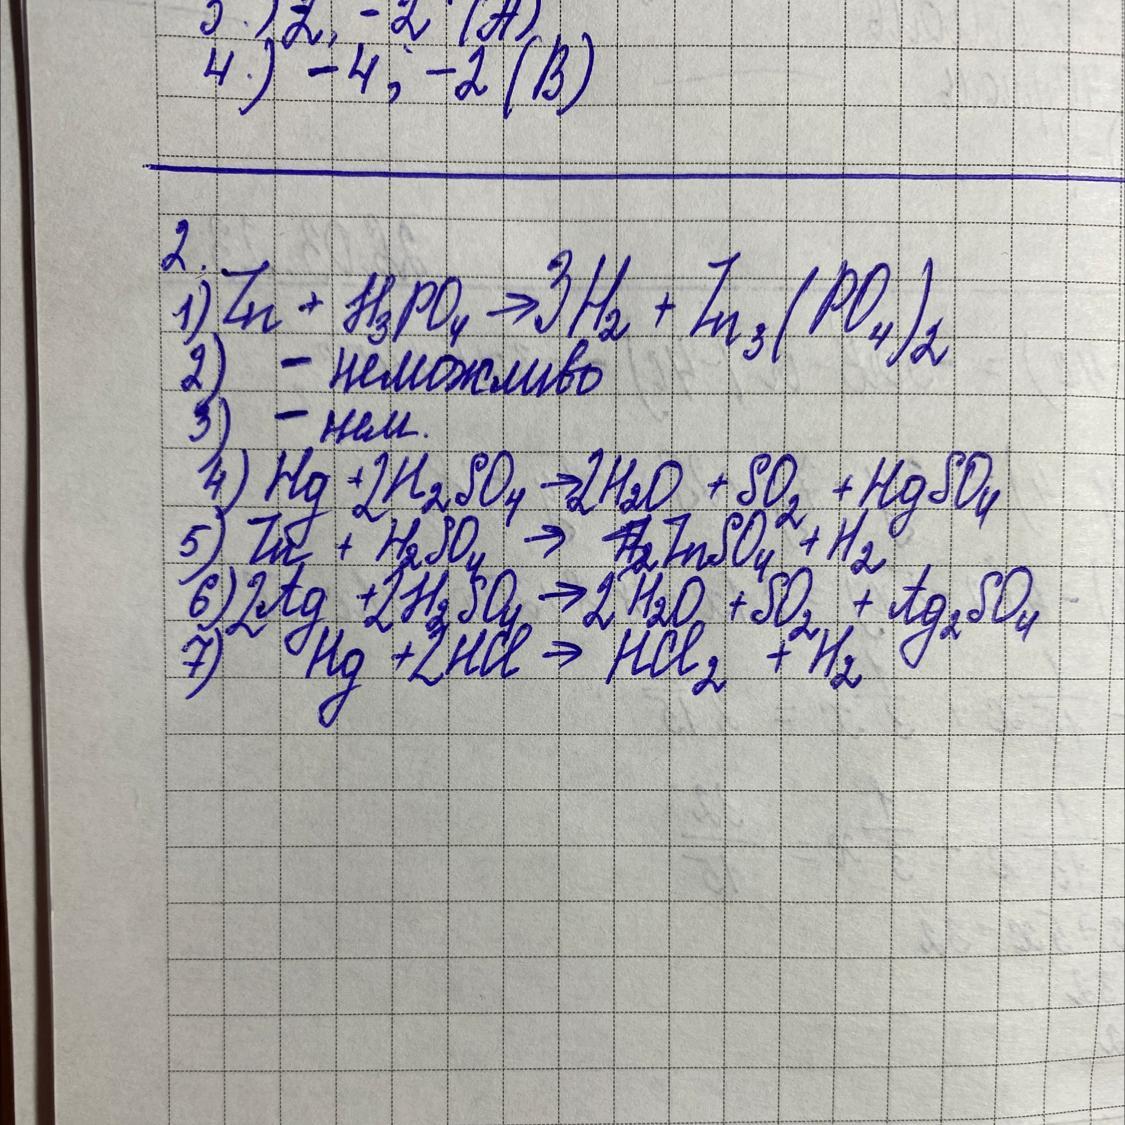 3.) 2; -2 (A)
4.) -4; -2 (В)
2.
1) Zn + H₃PO₄ → 3H₂ + Zn₃(PO₄)₂
2) - неможливо
3) - нем.
4) Hg + 2H₂SO₄ → 2H₂O + SO₂ + HgSO₄
5) Zn + H₂SO₄ → ZnSO₄ + H₂
6) 2Ag + 2H₂SO₄ → 2H₂O + SO₂ + Ag₂SO₄
7) Hg + 2HCl → HCl₂ + H₂